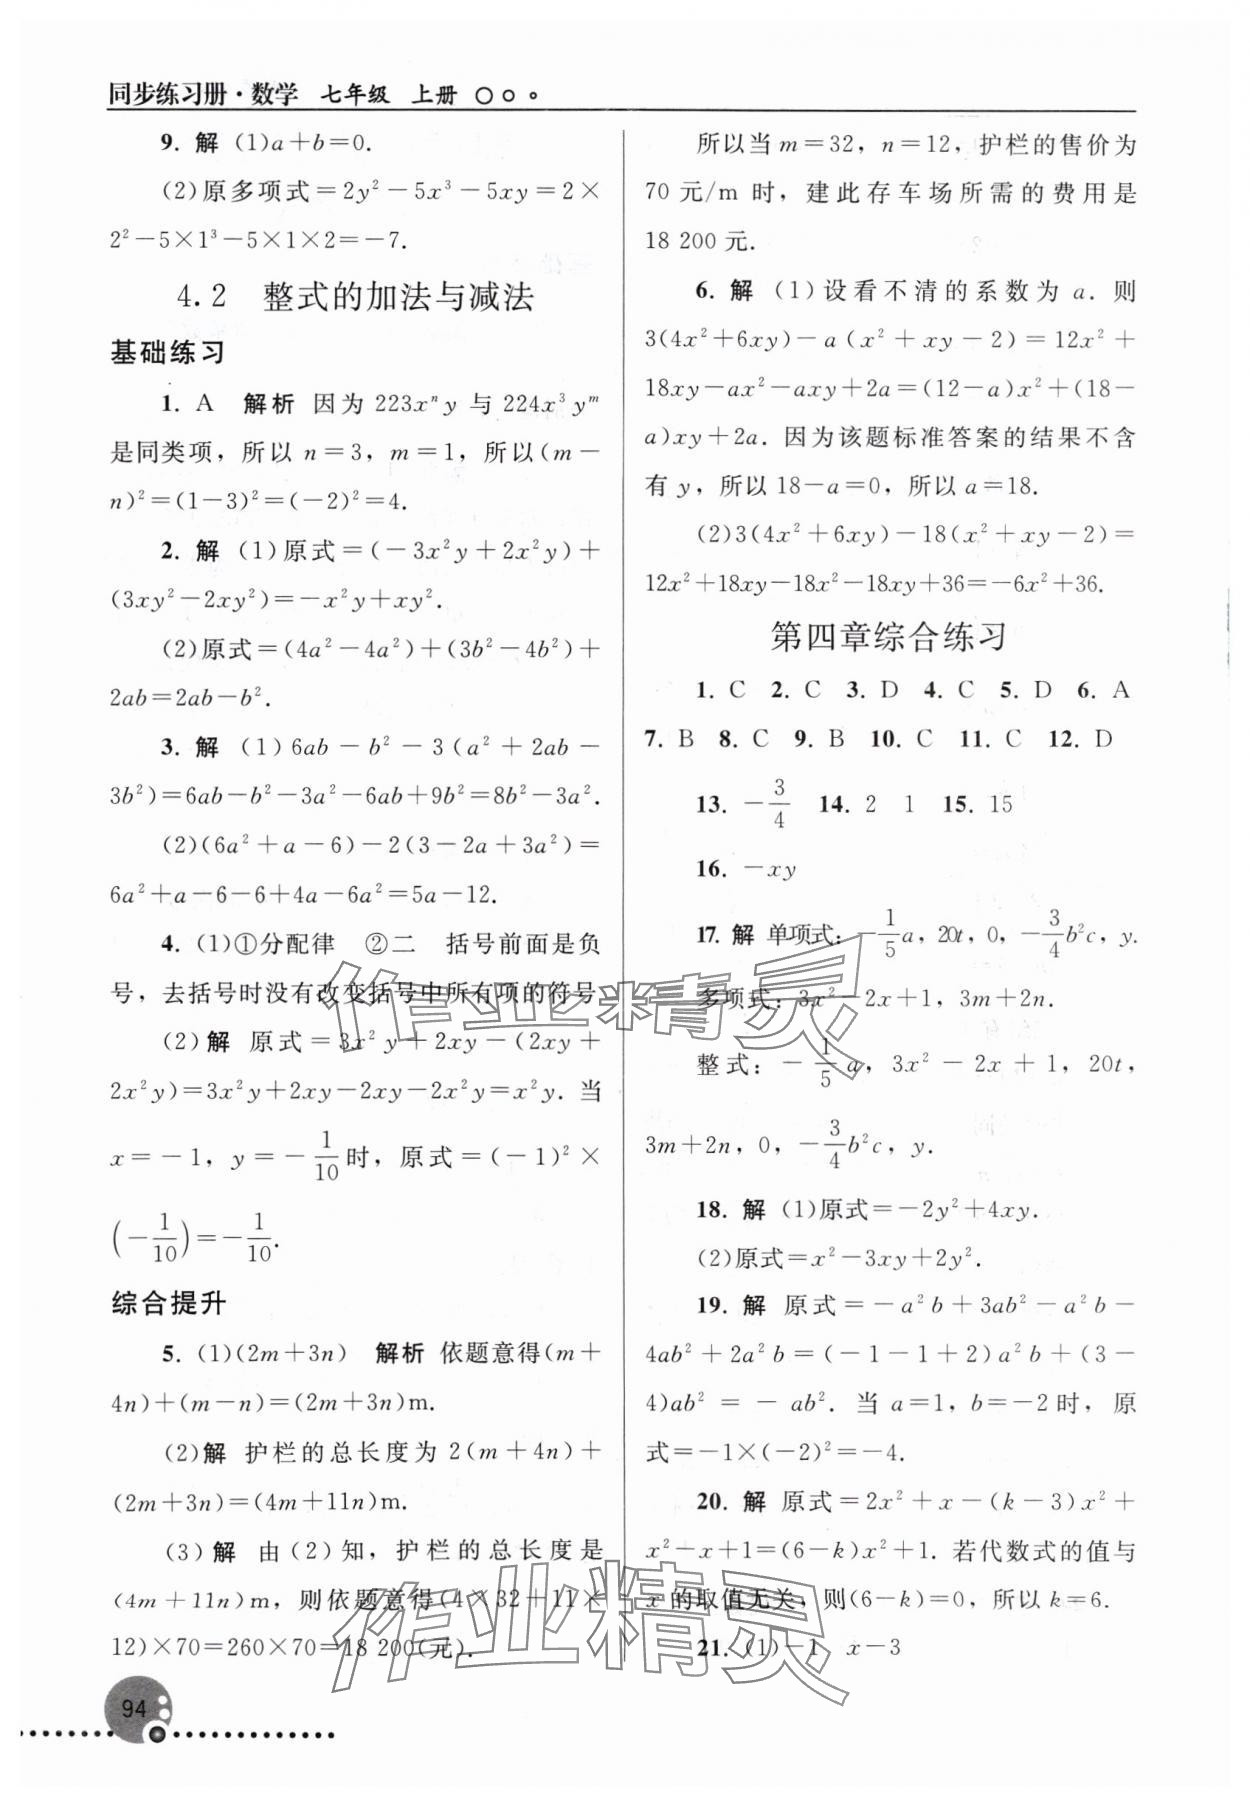 同步练习册·数学 七年级 上册
9. 解 (1)a+b=0.
(2)原多项式=2y²-5x³-5xy=2×
2²-5×1³-5×1×2=-7.
4.2 整式的加法与减法
基础练习
1. A 解析 因为 223xⁿy 与 224x³yᵐ
是同类项,所以 n=3,m=1,所以(m-
n)²=(1-3)²=(-2)²=4.
2. 解 (1)原式=(-3x²y+2x²y)+
(3xy²-2xy²)=-x²y+xy².
(2)原式=(4a²-4a²)+(3b²-4b²)+
2ab=2ab-b².
3. 解 (1)6ab-b²-3(a²+2ab-
3b²)=6ab-b²-3a²-6ab+9b²=8b²-3a².
(2)(6a²+a-6)-2(3-2a+3a²)=
6a²+a-6-6+4a-6a²=5a-12.
4. (1)①分配律 ②二 括号前面是负
号,去括号时没有改变括号中所有项的符号
(2)解 原式=3x²y+2xy-(2xy+
2x²y)=3x²y+2xy-2xy-2x²y=x²y. 当
x=-1,y=-1/10时,原式=(-1)²×
(-1/10)=-1/10.
综合提升
5. (1)(2m+3n) 解析 依题意得(m+
4n)+(m-n)=(2m+3n)m.
(2)解 护栏的总长度为 2(m+4n)+
(2m+3n)=(4m+11n)m.
(3)解 由(2)知,护栏的总长度是
(4m+11n)m,则依题意得(4×32+11×
12)×70=260×70=18 200(元).
94
所以当 m=32,n=12,护栏的售价为
70 元/m 时,建此存车场所需的费用是
18 200 元.
6. 解 (1)设看不清的系数为 a. 则
3(4x²+6xy)-a(x²+xy-2)=12x²+
18xy-ax²-axy+2a=(12-a)x²+(18-
a)xy+2a. 因为该题标准答案的结果不含
有 y,所以 18-a=0,所以 a=18.
(2)3(4x²+6xy)-18(x²+xy-2)=
12x²+18xy-18x²-18xy+36=-6x²+36.
第四章综合练习
1. C 2. C 3. D 4. C 5. D 6. A
7. B 8. C 9. B 10. C 11. C 12. D
13. -3/4 14. 2 1 15. 15
16. -xy
17. 解 单项式:-1/5a,20t,0,-3/4b²c,y.
多项式:3x²-2x+1,3m+2n.
整式:-1/5a,3x²-2x+1,20t,
3m+2n,0,-3/4b²c,y.
18. 解 (1)原式=-2y²+4xy.
(2)原式=x²-3xy+2y².
19. 解 原式=-a²b+3ab²-a²b-
4ab²+2a²b=(-1-1+2)a²b+(3-
4)ab²=-ab². 当 a=1,b=-2时,原
式=-1×(-2)²=-4.
20. 解 原式=2x²+x-(k-3)x²+
x²-x+1=(6-k)x²+1. 若代数式的值与
x 的取值无关,则(6-k)=0,所以 k=6.
21. (1)-1 x-3
作业精灵
作业精灵